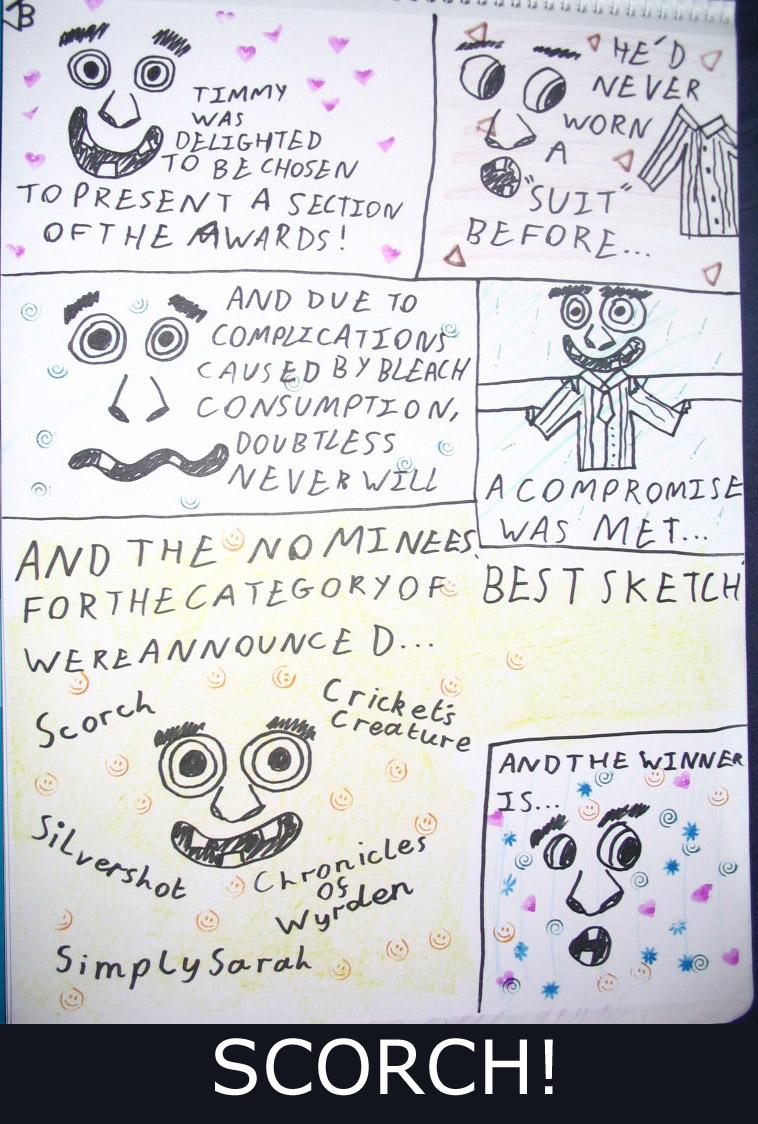 B
TIMMY
WAS
DELIGHTED
TO BE CHOSEN
TO PRESENT A SECTION
OF THE AWARDS!
HE'D
NEVER
WORN
A
"SUIT"
BEFORE...
AND DUE TO
COMPLICATIONS
CAUSED BY BLEACH
CONSUMPTION,
DOUBTLESS
NEVER WILL
A COMPROMISE
WAS MET...
AND THE NOMINEES
FOR THE CATEGORY OF 'BEST SKETCH'
WERE ANNOUNCED...
Scorch
Cricket's
Creature
Silvershot
Chronicles
Of
Wyrden
Simply Sarah
AND THE WINNER
IS...
SCORCH!